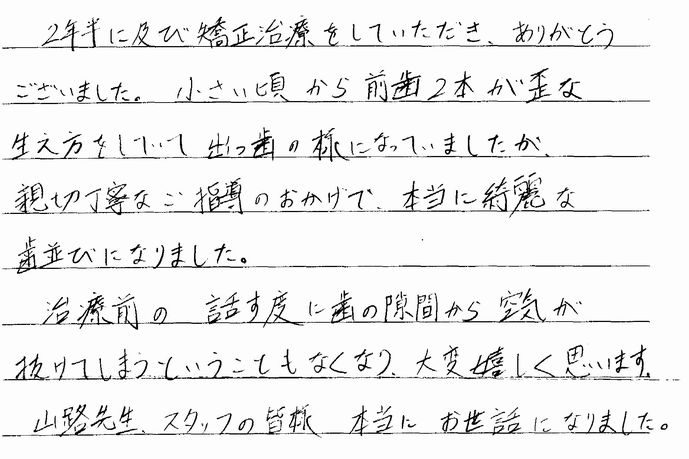 2年半に及び矯正治療をしていただき、ありがとう
ございました。小さい頃から前歯2本が歪な
生え方をしていて出っ歯の様になっていましたが、
親切丁寧なご指導のおかげで、本当に綺麗な
歯並びになりました。
治療前の話す度に歯の隙間から空気が
抜けてしまうということもなくなり、大変嬉しく思います。
山路先生、スタッフの皆様 本当に お世話になりました。